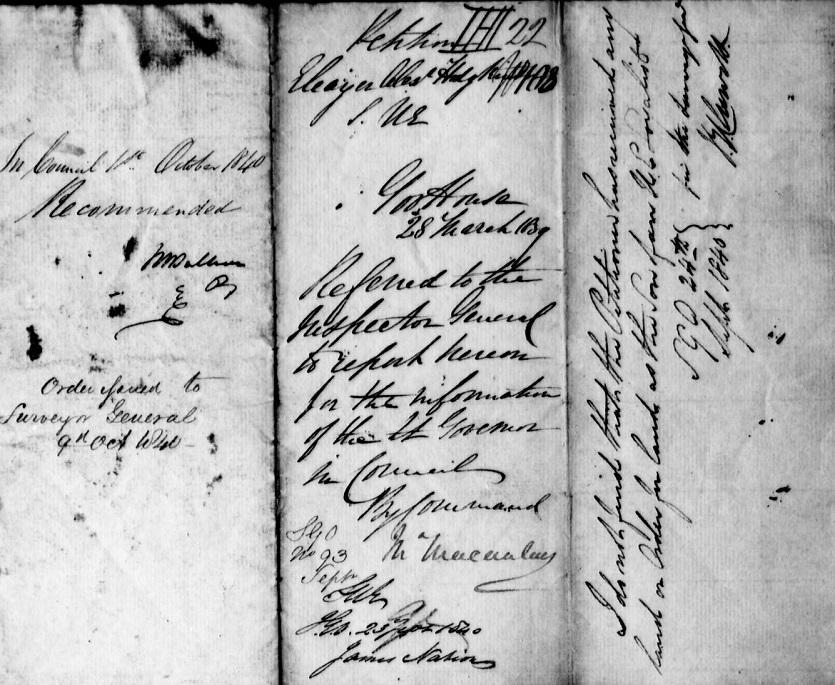 In Council 1st October 1840
Recommended
Order issued to
Surveyor General
9th Oct 1840
Petition 22
S. UE
Gov House
28 March 1839
Referred to the
Inspector General
to report hereon
for the information
of the Lt Governor
in Council
By Command
SGO
No 93
Septr
1840
James Nation
I do not find that the Petitioner has received any
land or Order for land as the Son of an U.E. Loyalist
SGO 24th
Sept. 1840
for the Surveyor Genl